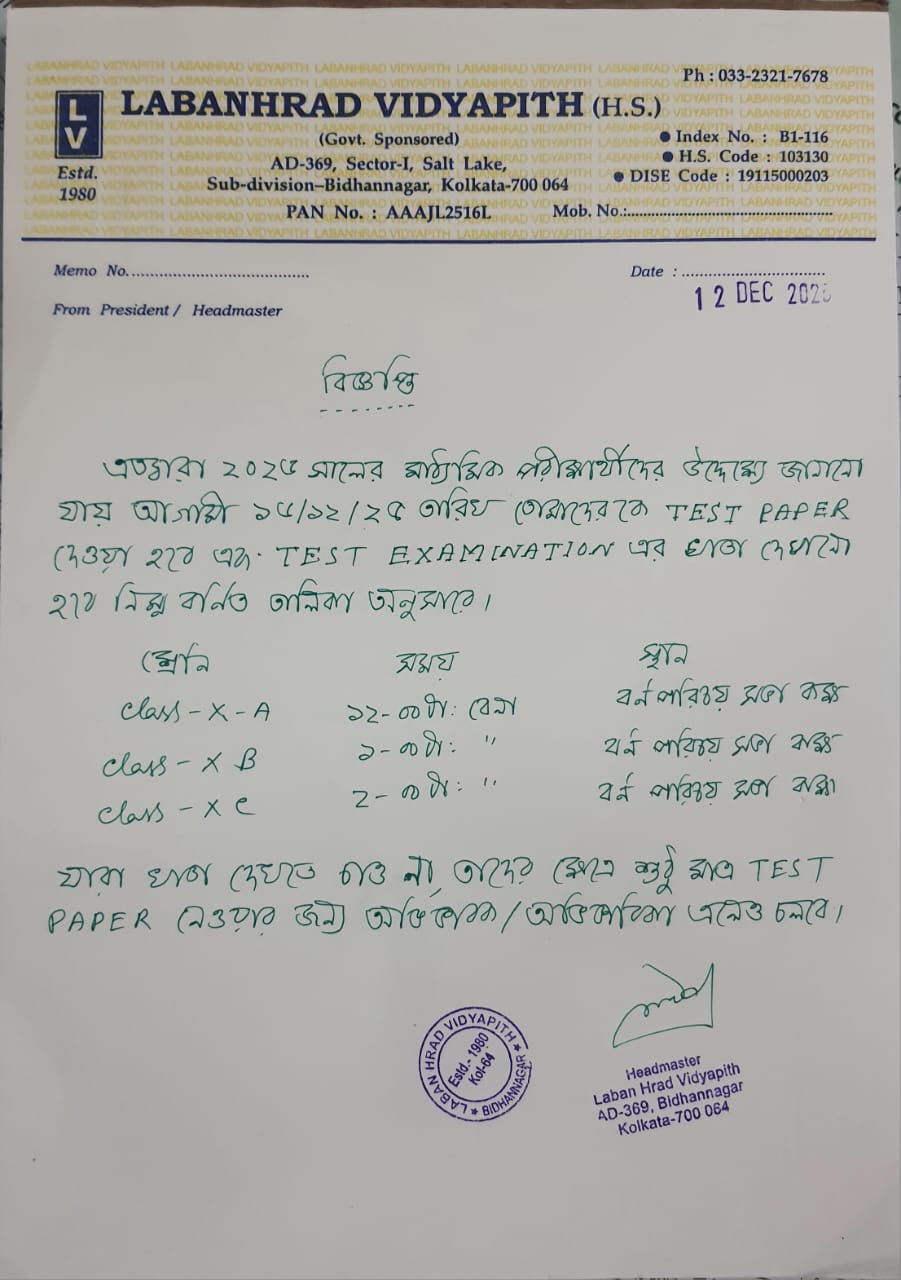 Ph : 033-2321-7678
LV
LABANHRAD VIDYAPITH (H.S.)
(Govt. Sponsored)
● Index No. : B1-116
AD-369, Sector-I, Salt Lake,
● H.S. Code : 103130
Estd.
1980
Sub-division–Bidhannagar, Kolkata-700 064
● DISE Code : 19115000203
PAN No. : AAAJL2516L
Mob. No.:
Memo No.
Date :
12 DEC 2025
From President / Headmaster
বিজ্ঞপ্তি
এতদ্বারা ২০২৫ সালের মাধ্যমিক পরীক্ষার্থীদের উদ্দেশ্যে জানানো
যায় আগামী ১৫/১২/২৫ তারিখ তোমাদেরকে TEST PAPER
দেওয়া হবে এবং TEST EXAMINATION এর খাতা দেখানো
হবে নিম্ন বর্নিত তালিকা অনুসারে।
শ্রেনি সময় স্থান
class - X - A ১২-০০টা: বেলা বর্ন পরিচয় সভা কক্ষ
class - X B ১-০০টা: " বর্ন পরিচয় সভা কক্ষ
class - X C 2-০০টা: " বর্ন পরিচয় সভা কক্ষ
যারা খাতা দেখতে চাও না, তাদের ক্ষেত্রে শুধু মাত্র TEST
PAPER নেওয়ার জন্য অভিভাবক/অভিভাবিকা এলেও চলবে।
LABAN HRAD VIDYAPITH ★ BIDHANNAGAR ★
Estd.- 1980
Kol-64
Headmaster
Laban Hrad Vidyapith
AD-369, Bidhannagar
Kolkata-700 064